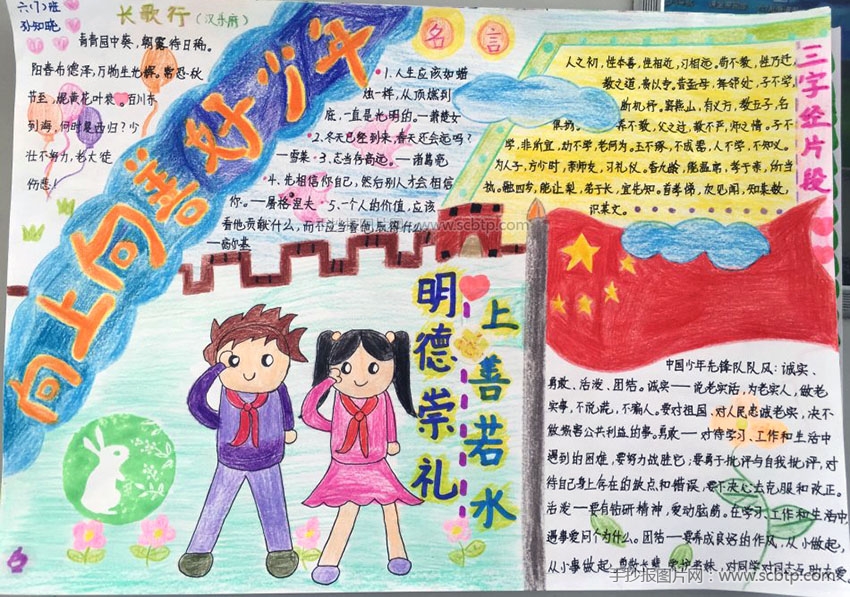 六(7)班
长歌行(汉乐府)
青青园中葵,朝露待日稀。
阳春布德泽,万物生光辉。常恐秋
节至,焜黄花叶衰。百川东
到海,何时复西归?少
壮不努力,老大徒
伤悲!
向上向善好少年
名言
1.人生应该如蜡
烛一样,从顶燃到
底,一直是光明的。—萧楚女
2.冬天已经到来,春天还会远吗?
—雪莱 3.志当存高远。—诸葛亮
4.先相信你自己,然后别人才会相信
你。—屠格涅夫 5.一个人的价值,应该
看他贡献什么,而不应当看他取得什么
—
三字经片段
人之初,性本善,性相近,习相远。苟不教,性乃迁,
教之道,贵以专。昔孟母,择邻处,子不学,
断机杼。窦燕山,有义方,教五子,名
俱扬。养不教,父之过,教不严,师之惰。子不
学,非所宜,幼不学,老何为。玉不琢,不成器,人不学,不知义。
为人子,方少时,亲师友,习礼仪。香九龄,能温席,孝于亲,所当
执。融四岁,能让梨,弟于长,宜先知。首孝悌,次见闻,知某数,
识某文。
www.scbtp.com
明德崇礼
上善若水
中国少年先锋队队风:诚实、
勇敢、活泼、团结。诚实——说老实话,为老实人,做老
实事,不说谎,不骗人。要对祖国、对人民忠诚老实,决不
做损害公共利益的事。勇敢——对待学习、工作和生活中
遇到的困难,要努力战胜它;要勇于批评与自我批评,对
待自己身上存在的缺点和错误,要下决心去克服和改正。
活泼——要有钻研精神,爱动脑筋。在学习、工作和生活中,
遇事爱问个为什么。团结——要养成良好的作风,从小做起,
从小事做起,
手抄报图片网:www.scbtp.com